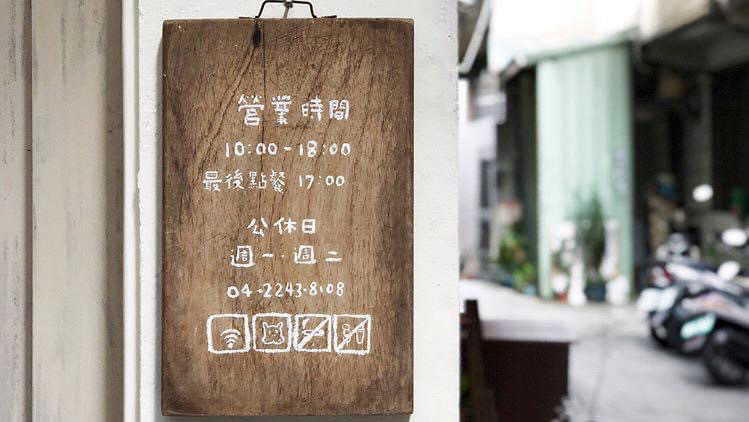 營業時間
10:00-18:00
最後點餐 17:00
公休日
週一·週二
04-2243-8108